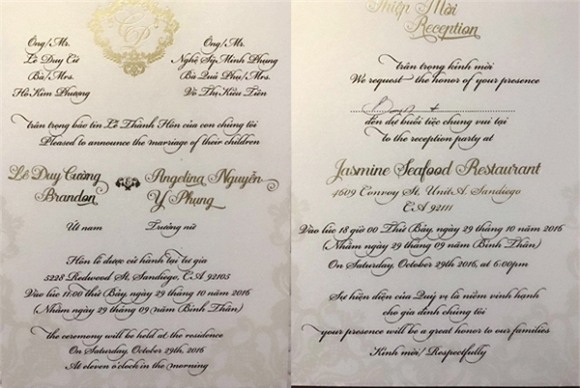 CP
Ông/Mr.
Lê Duy Cử
Bà/Mrs.
Hà Kim Phượng
Ông/Mr.
Nghệ Sỹ Minh Phụng
Bà Quả Phụ/Mrs.
Võ Thị Kiều Tiên
trân trọng báo tin Lễ Thành Hôn của con chúng tôi
Pleased to announce the marriage of their children
Lê Duy Cường
Brandon
Angelina Nguyễn
Y Phụng
Út nam
Trưởng nữ
Hôn lễ được cử hành tại tư gia
5228 Redwood St, Sandiego, CA 92105
Vào lúc 11:00 thứ Bảy, ngày 29 tháng 10 năm 2016
(Nhằm ngày 29 tháng 09 năm Bính Thân)
the ceremony will be held at the residence
On Saturday, October 29th, 2016
At eleven o'clock in the morning
Thiệp Mời
Reception
trân trọng kính mời
We request the honor of your presence
đến dự buổi tiệc chung vui tại
to the reception party at
Jasmine Seafood Restaurant
4609 Convoy St. Unit A. Sandiego
CA 92111
Vào lúc 18 giờ 00 Thứ Bảy, ngày 29 tháng 10 năm 2016
(Nhằm ngày 29 tháng 09 năm Bính Thân)
On Saturday, October 29th, 2016, at 6:00pm
Sự hiện diện của Quý vị là niềm vinh hạnh
cho gia đình chúng tôi
your presence will be a great honor to our families
Kính mời/ Respectfully